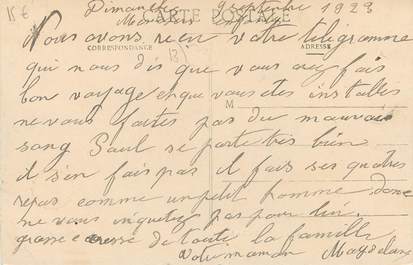 15€
Dimanche 9 Septembre 1923
CARTE POSTALE
CORRESPONDANCE
ADRESSE
Nous avons recu votre télégramme
qui nous dis que vous avez fais
bon voyage et que vous etes installes
M
ne vous faites pas du mauvais
sang Paul se porte tres bien
il s'en fais pas il fais ses quatres
repas comme un petit homme donc
ne vous inquetez pas pour lui.
grosse de toute la famille
Votre maman